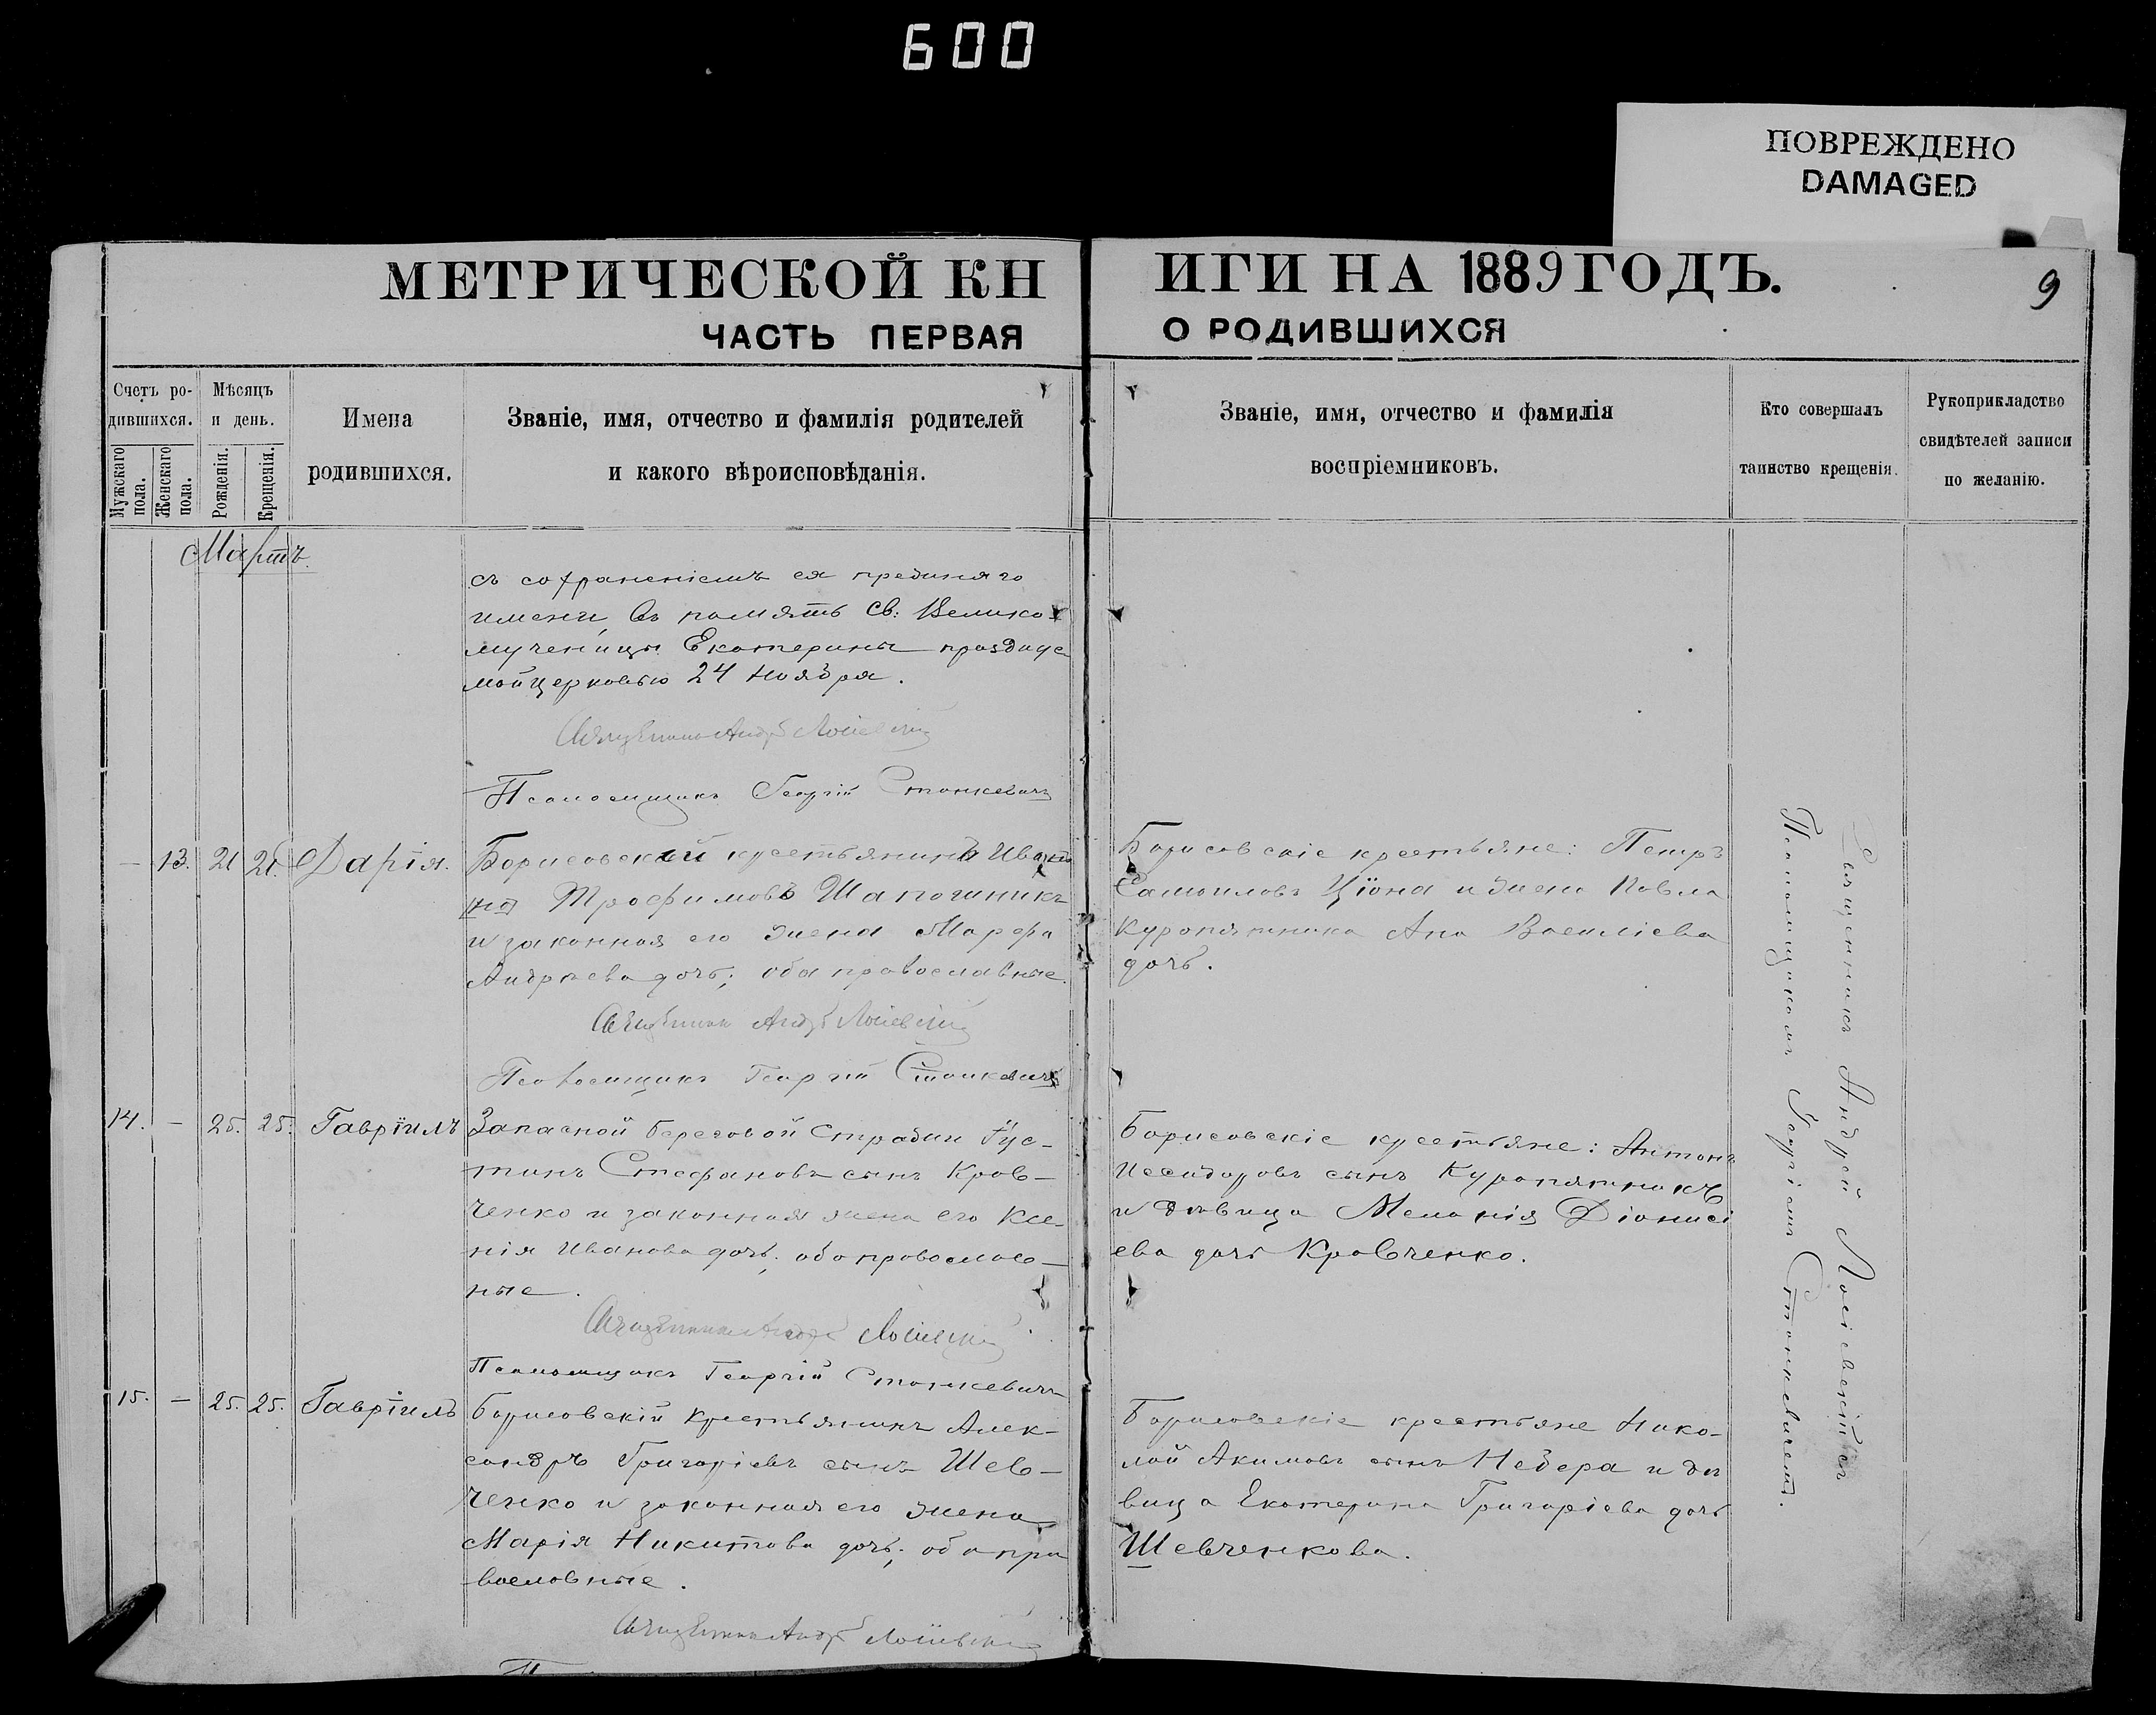 600
ПОВРЕЖДЕНО
DAMAGED
МЕТРИЧЕСКОЙ КН
ИГИ НА 1889 ГОДЪ.
9
ЧАСТЬ ПЕРВАЯ
О РОДИВШИХСЯ
Счетъ ро-
дившихся.
Мужскаго
пола.
Женскаго
пола.
Мѣсяцъ
и день.
Рожденія.
Крещенія.
Имена
родившихся.
Званіе, имя, отчество и фамилія родителей
и какого вѣроисповѣданія.
Званіе, имя, отчество и фамилія
воспріемниковъ.
Кто совершалъ
таинство крещенія.
Рукоприкладство
свидѣтелей записи
по желанію.
Мартъ.
съ сохраненіемъ ея
имени, въ память св: Велико-
мученицы Екатерины празднуе
мой церковью 24 ноября.
Священникъ Андрей Лосіевскій
Псаломщикъ Георгій Станкевичъ
— 13. 21 21. Дарія.
Борисовскій крестьянинъ Иванъ
Трофимовъ Шапошникъ
и законная его жена Марфа
Андреева дочь; оба православные.
Священникъ Андрей Лосіевскій
Псаломщикъ Георгій Станкевичъ
Борисовскіе крестьяне: Петръ
Самоиловъ Ціона и жена Павла
Куропятника Анна Василіева
дочь.
14. — 25. 25. Гавріилъ
Запасной береговой Стражи Іус-
тинъ Стефановъ сынъ Крав-
ченко и законная жена его Ксе-
нія Иванова дочь; оба православ-
ные.
Священникъ Андрей Лосіевскій
Псаломщикъ Георгій Станкевичъ
Борисовскіе крестьяне: Антонъ
Исидоровъ сынъ Куропятникъ
и дѣвица Меланія Діонисі
ева дочь Кравченко.
15. — 25. 25. Гавріилъ
Борисовскій Крестьянинъ Алек-
сандръ Григоріевъ сынъ Шев-
ченко и законная его жена
Марія Никитова дочь; оба пра
вославные.
Священникъ Андрей Лосіевскій
Борисовскіе крестьяне Нико-
лай Акимовъ сынъ Небера и дѣ
вица Екатерина Григоріева дочь
Шевченкова.
Священникъ Андрей Лосіевскій съ
Псаломщикомъ Георгіемъ Станкевичемъ.